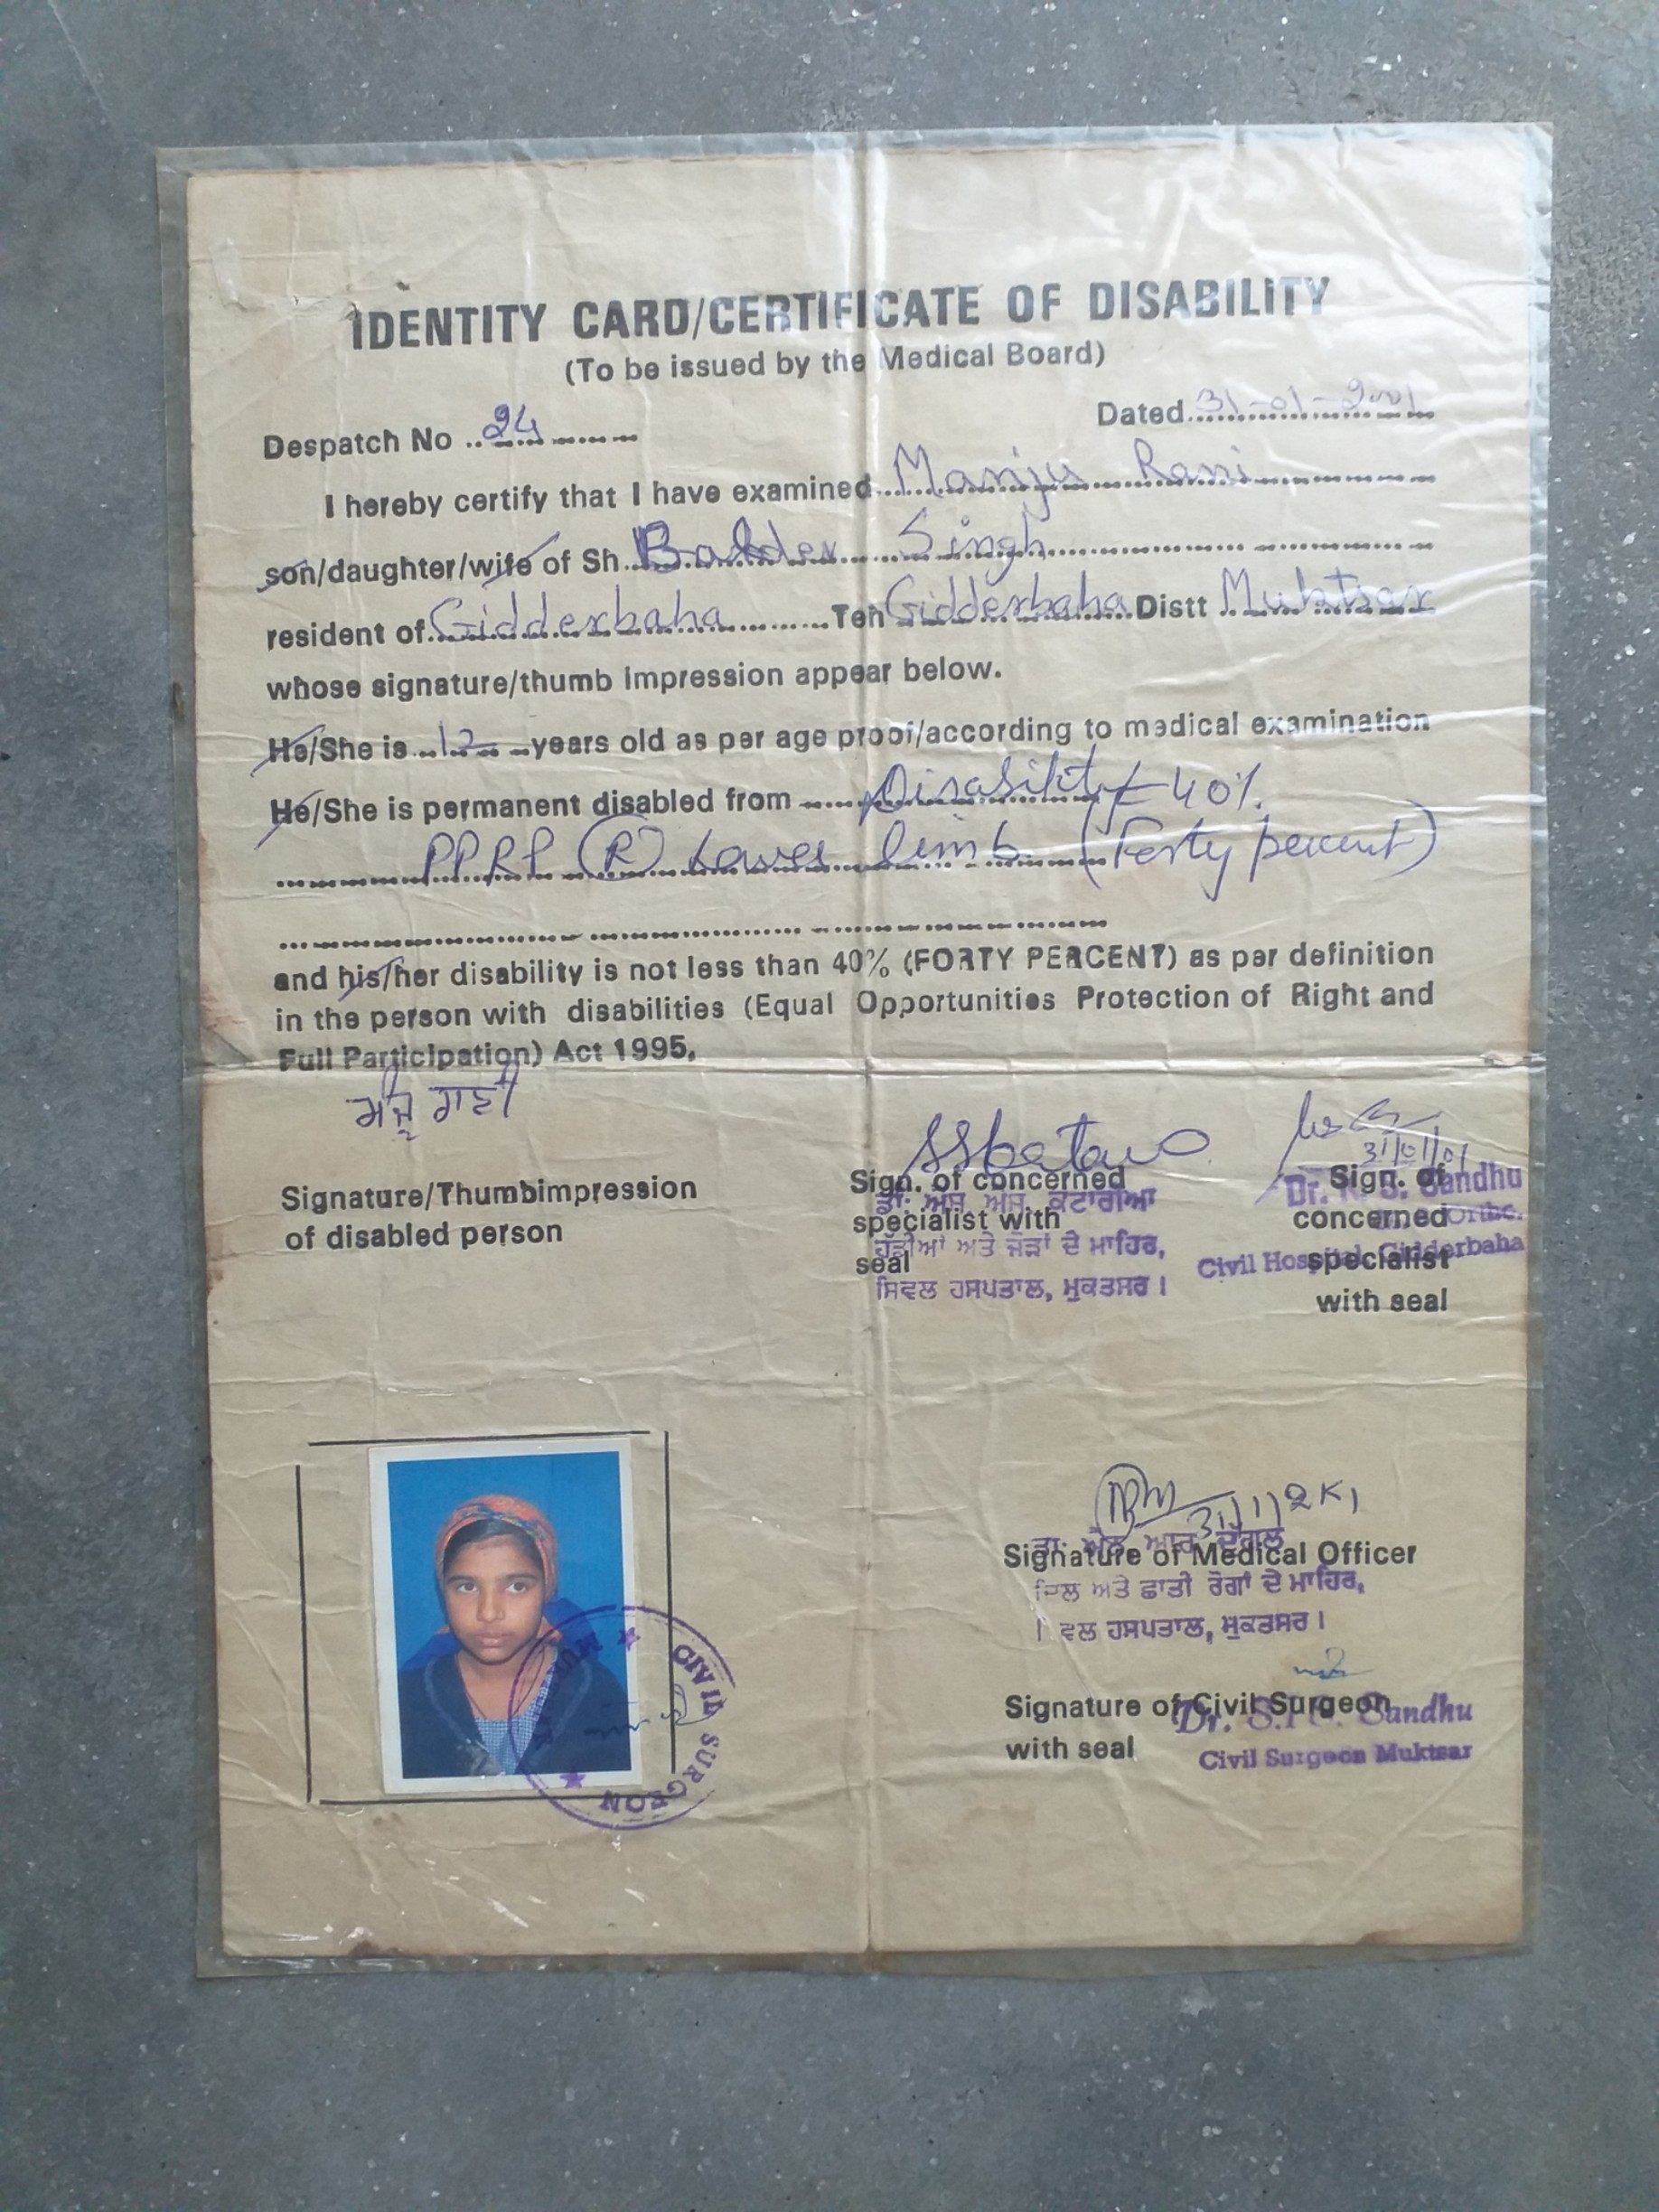 IDENTITY CARD/CERTIFICATE OF DISABILITY
(To be issued by the Medical Board)
Despatch No 24
Dated 31-01-2001
I hereby certify that I have examined Manju Rani
son/daughter/wife of Sh. Baldev Singh
resident of Gidderbaha Teh Gidderbaha Distt Muktsar
whose signature/thumb impression appear below.
He/She is 12 years old as per age proof/according to medical examination
He/She is permanent disabled from Disability 40%.
PPRP (R) Lower limb (Forty percent)
and his/her disability is not less than 40% (FORTY PERCENT) as per definition
in the person with disabilities (Equal Opportunities Protection of Right and
Full Participation) Act 1995.
ਮੰਜੂ ਰਾਣੀ
Signature/Thumbimpression
of disabled person
Sign. of concerned
specialist with
seal
ਡਾ: ਐਸ ਐਸ. ਕਟਾਰੀਆ
ਹੱਡੀਆਂ ਅਤੇ ਜੋੜਾਂ ਦੇ ਮਾਹਿਰ,
ਸਿਵਲ ਹਸਪਤਾਲ, ਮੁਕਤਸਰ।
31/01/01
Sign. of
concerned
specialist
with seal
Dr. S. Sandhu
Ortho.
Civil Hospital, Gidderbaha
31/1/2K1
Signature of Medical Officer
ਡਾ: ਐਲ. ਆਰ.
ਦਿਲ ਅਤੇ ਛਾਤੀ ਰੋਗਾਂ ਦੇ ਮਾਹਿਰ,
ਹਸਪਤਾਲ, ਮੁਕਤਸਰ।
Signature of Civil Surgeon
with seal
Dr. Sandhu
Civil Surgeon Muktsar
CIVIL SURGEON